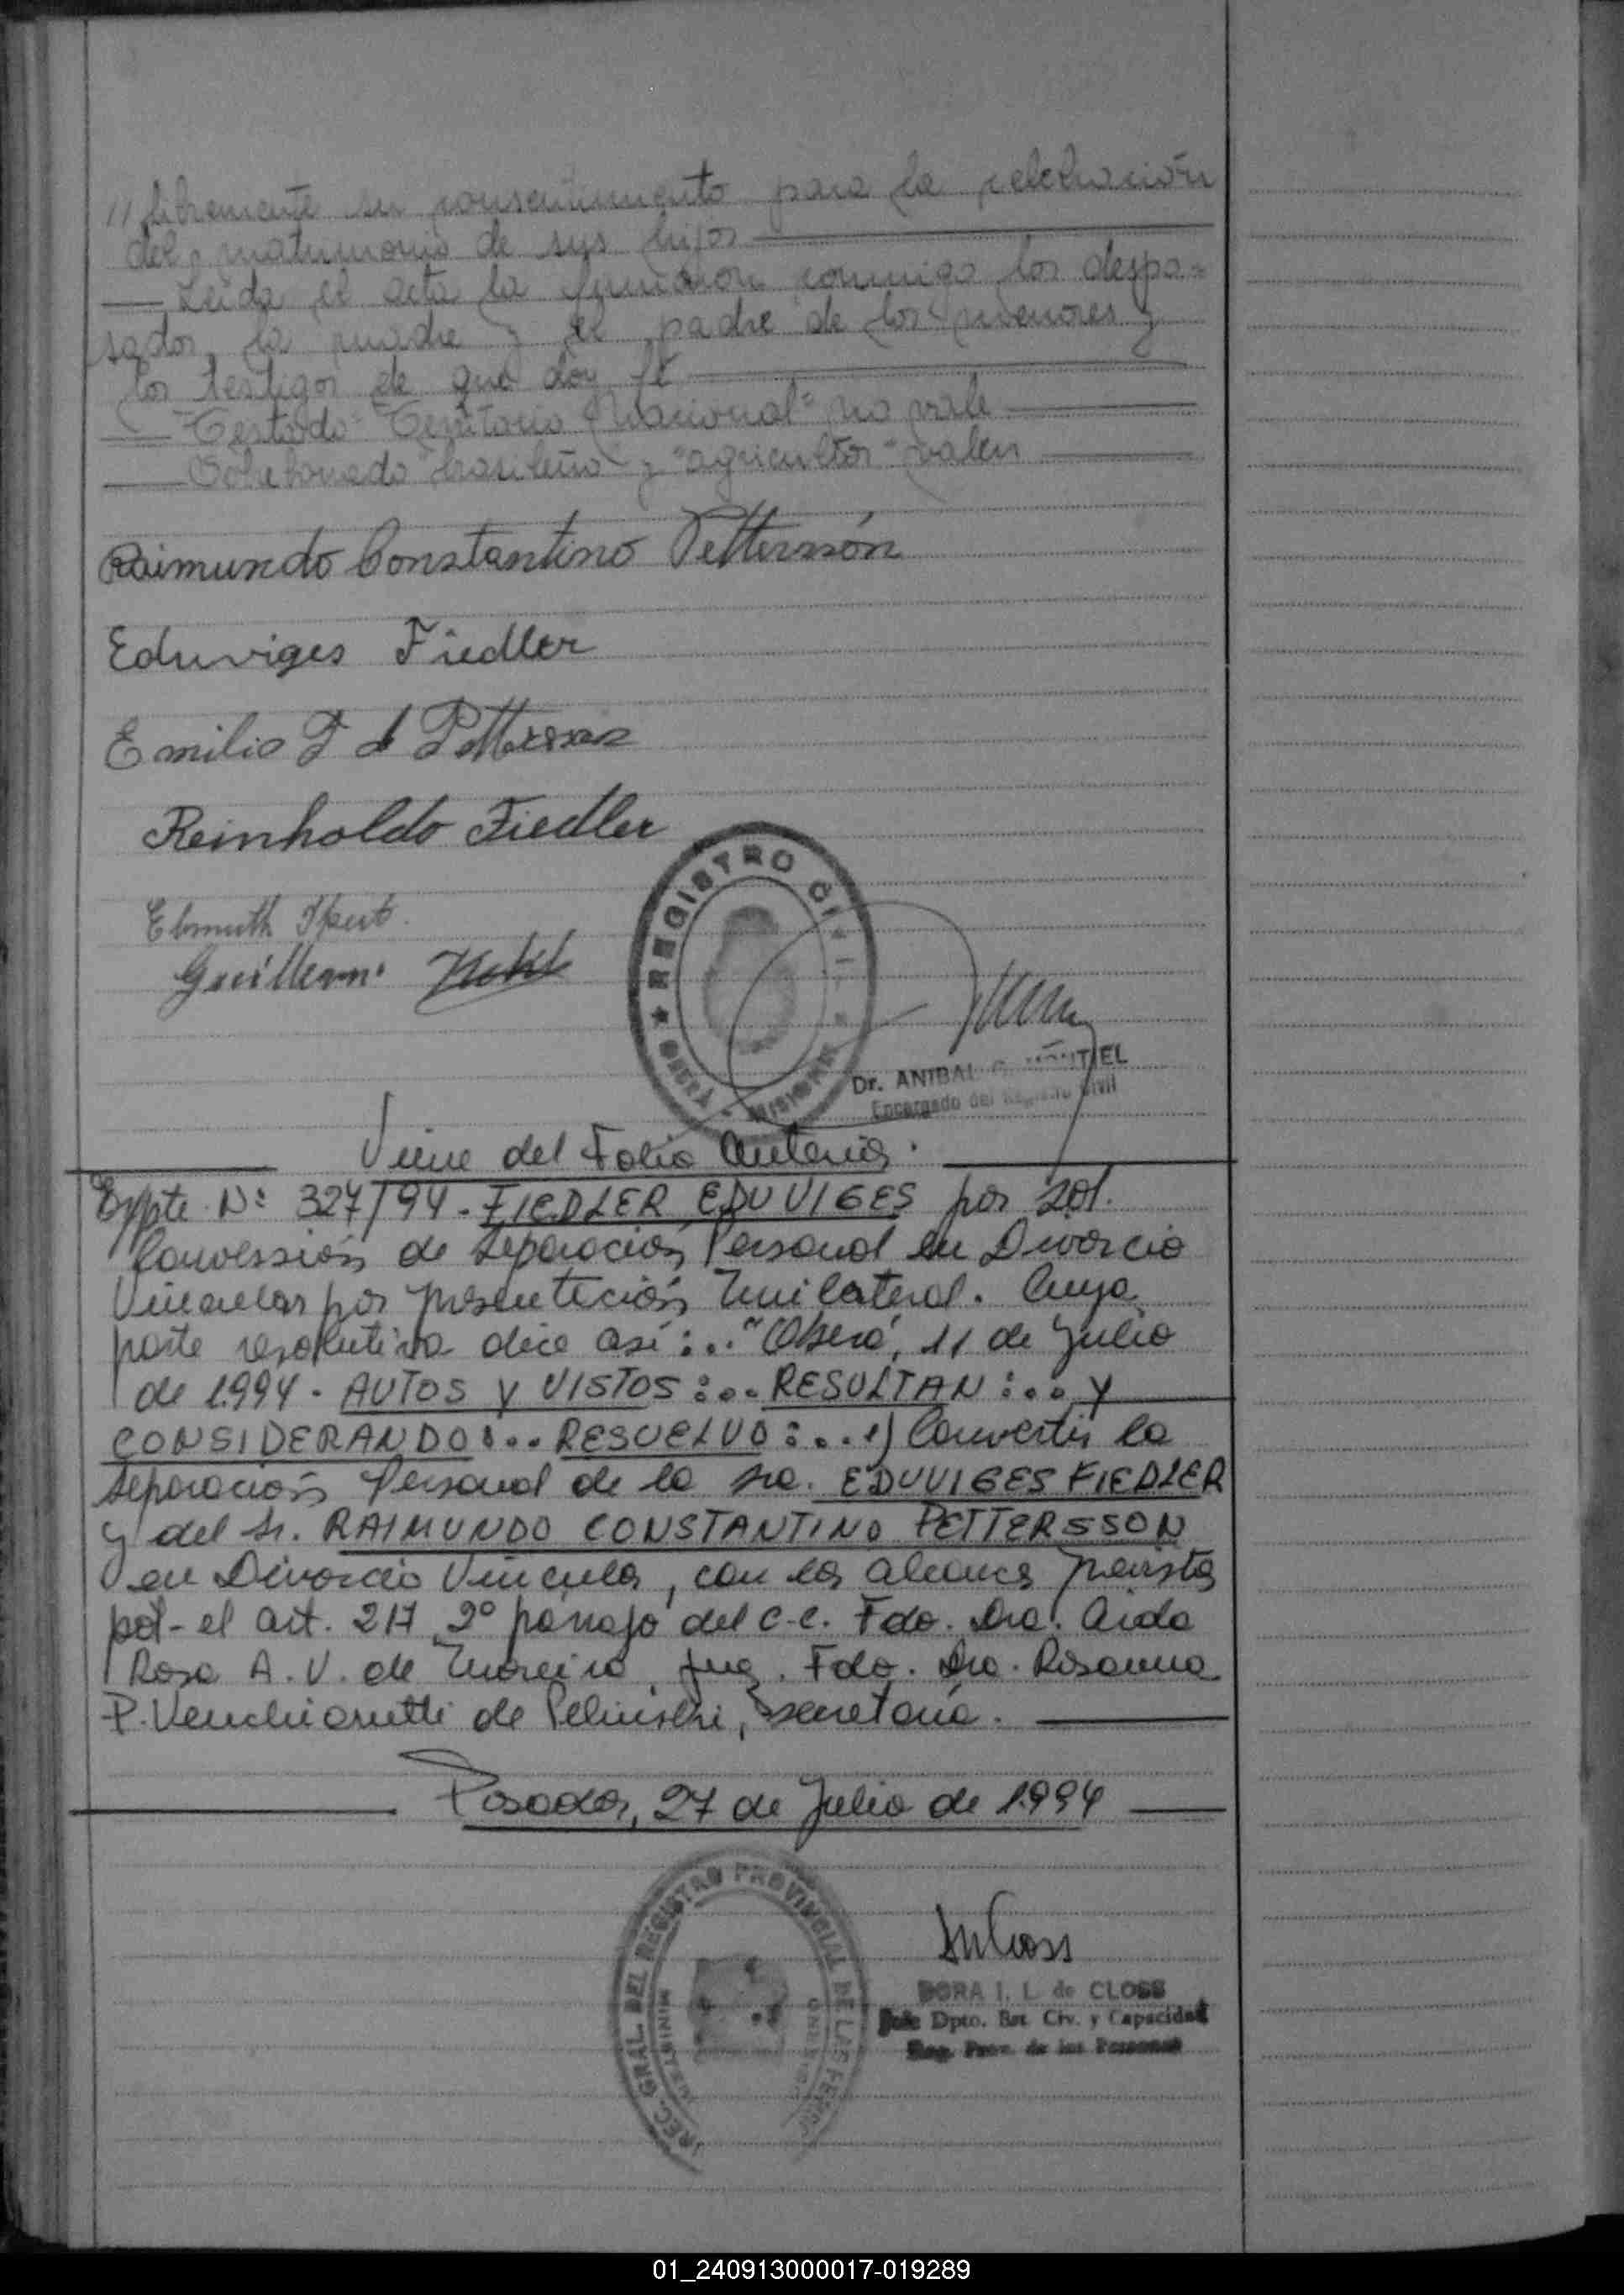 // libremente su consentimiento para la celebración
del matrimonio de sus hijos
Leida el acta la firmaron conmigo los despo=
sados, la madre y el padre de los menores y
los testigos de que doy fé
Testado "Territorio Nacional" no vale
Sobrebonado "brasileña" y "agricultor" valen
Raimundo Constantino Pettersson
Eduviges Fiedler
Emilia F d Pettersson
Reinholdo Fiedler
Guillermo
★ REGISTRO CIVIL ★
OBERÁ - MISIONES
Dr. ANIBAL G. MONTIEL
Encargado del Registro Civil
Viene del Folio Anterior.
Expte. Nº 327/94 - FIEDLER EDUVIGES por sol.
Conversión de Separación Personal en Divorcio
Vincular por presentación Unilateral. Cuya
parte resolutiva dice así:.. "Oberá, 11 de Julio
de 1.994 - AUTOS Y VISTOS:... RESULTAN:... y
CONSIDERANDO:... RESUELVO:... 1) Convertir la
Separación Personal de la sra. EDUVIGES FIEDLER
y del Sr. RAIMUNDO CONSTANTINO PETTERSSON
en Divorcio Vincular, con los alcances previstos
por el art. 217 2º párrafo del C.C. Fdo. Dra. Aida
Rosa A. V. de Moreira, Juez. Fdo. Dra. Rosanna
P. Venchiarutti de secretaria.
Posadas, 27 de Julio de 1.994
DIREC. GRAL. DEL REGISTRO PROVINCIAL DE LAS PERSONAS
MINISTERIO GOBIERNO
DORA I. L. de CLOSS
Jefe Dpto. Est. Civ. y Capacidad
Reg. Prov. de las Personas
01_240913000017-019289